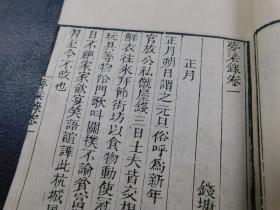 夢粱錄卷一
錢塘
正月
正月朔日謂之元旦俗呼為新年
官放公私僦屋錢三日士夫皆交相
鮮衣往來拜節街坊以食物動使冠
玩具等物沿門歌叫關撲不論貧富
日不絕家家飲宴笑語喧譁此杭城風
習至今不改也
夢粱錄卷一